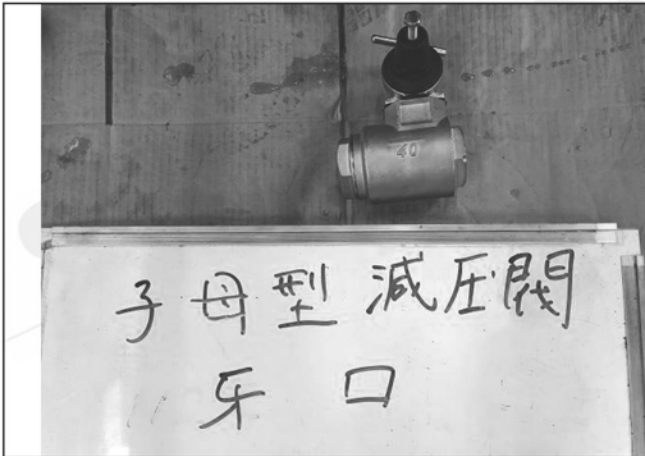 40
子母型減压閥
牙口